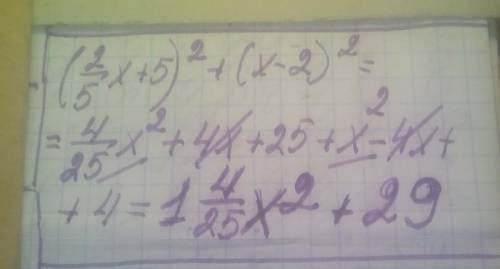 (2/5 x+5)² + (x-2)² =
= 4/25 x² + 4x + 25 + x² - 4x +
+ 4 = 1 4/25 x² + 29